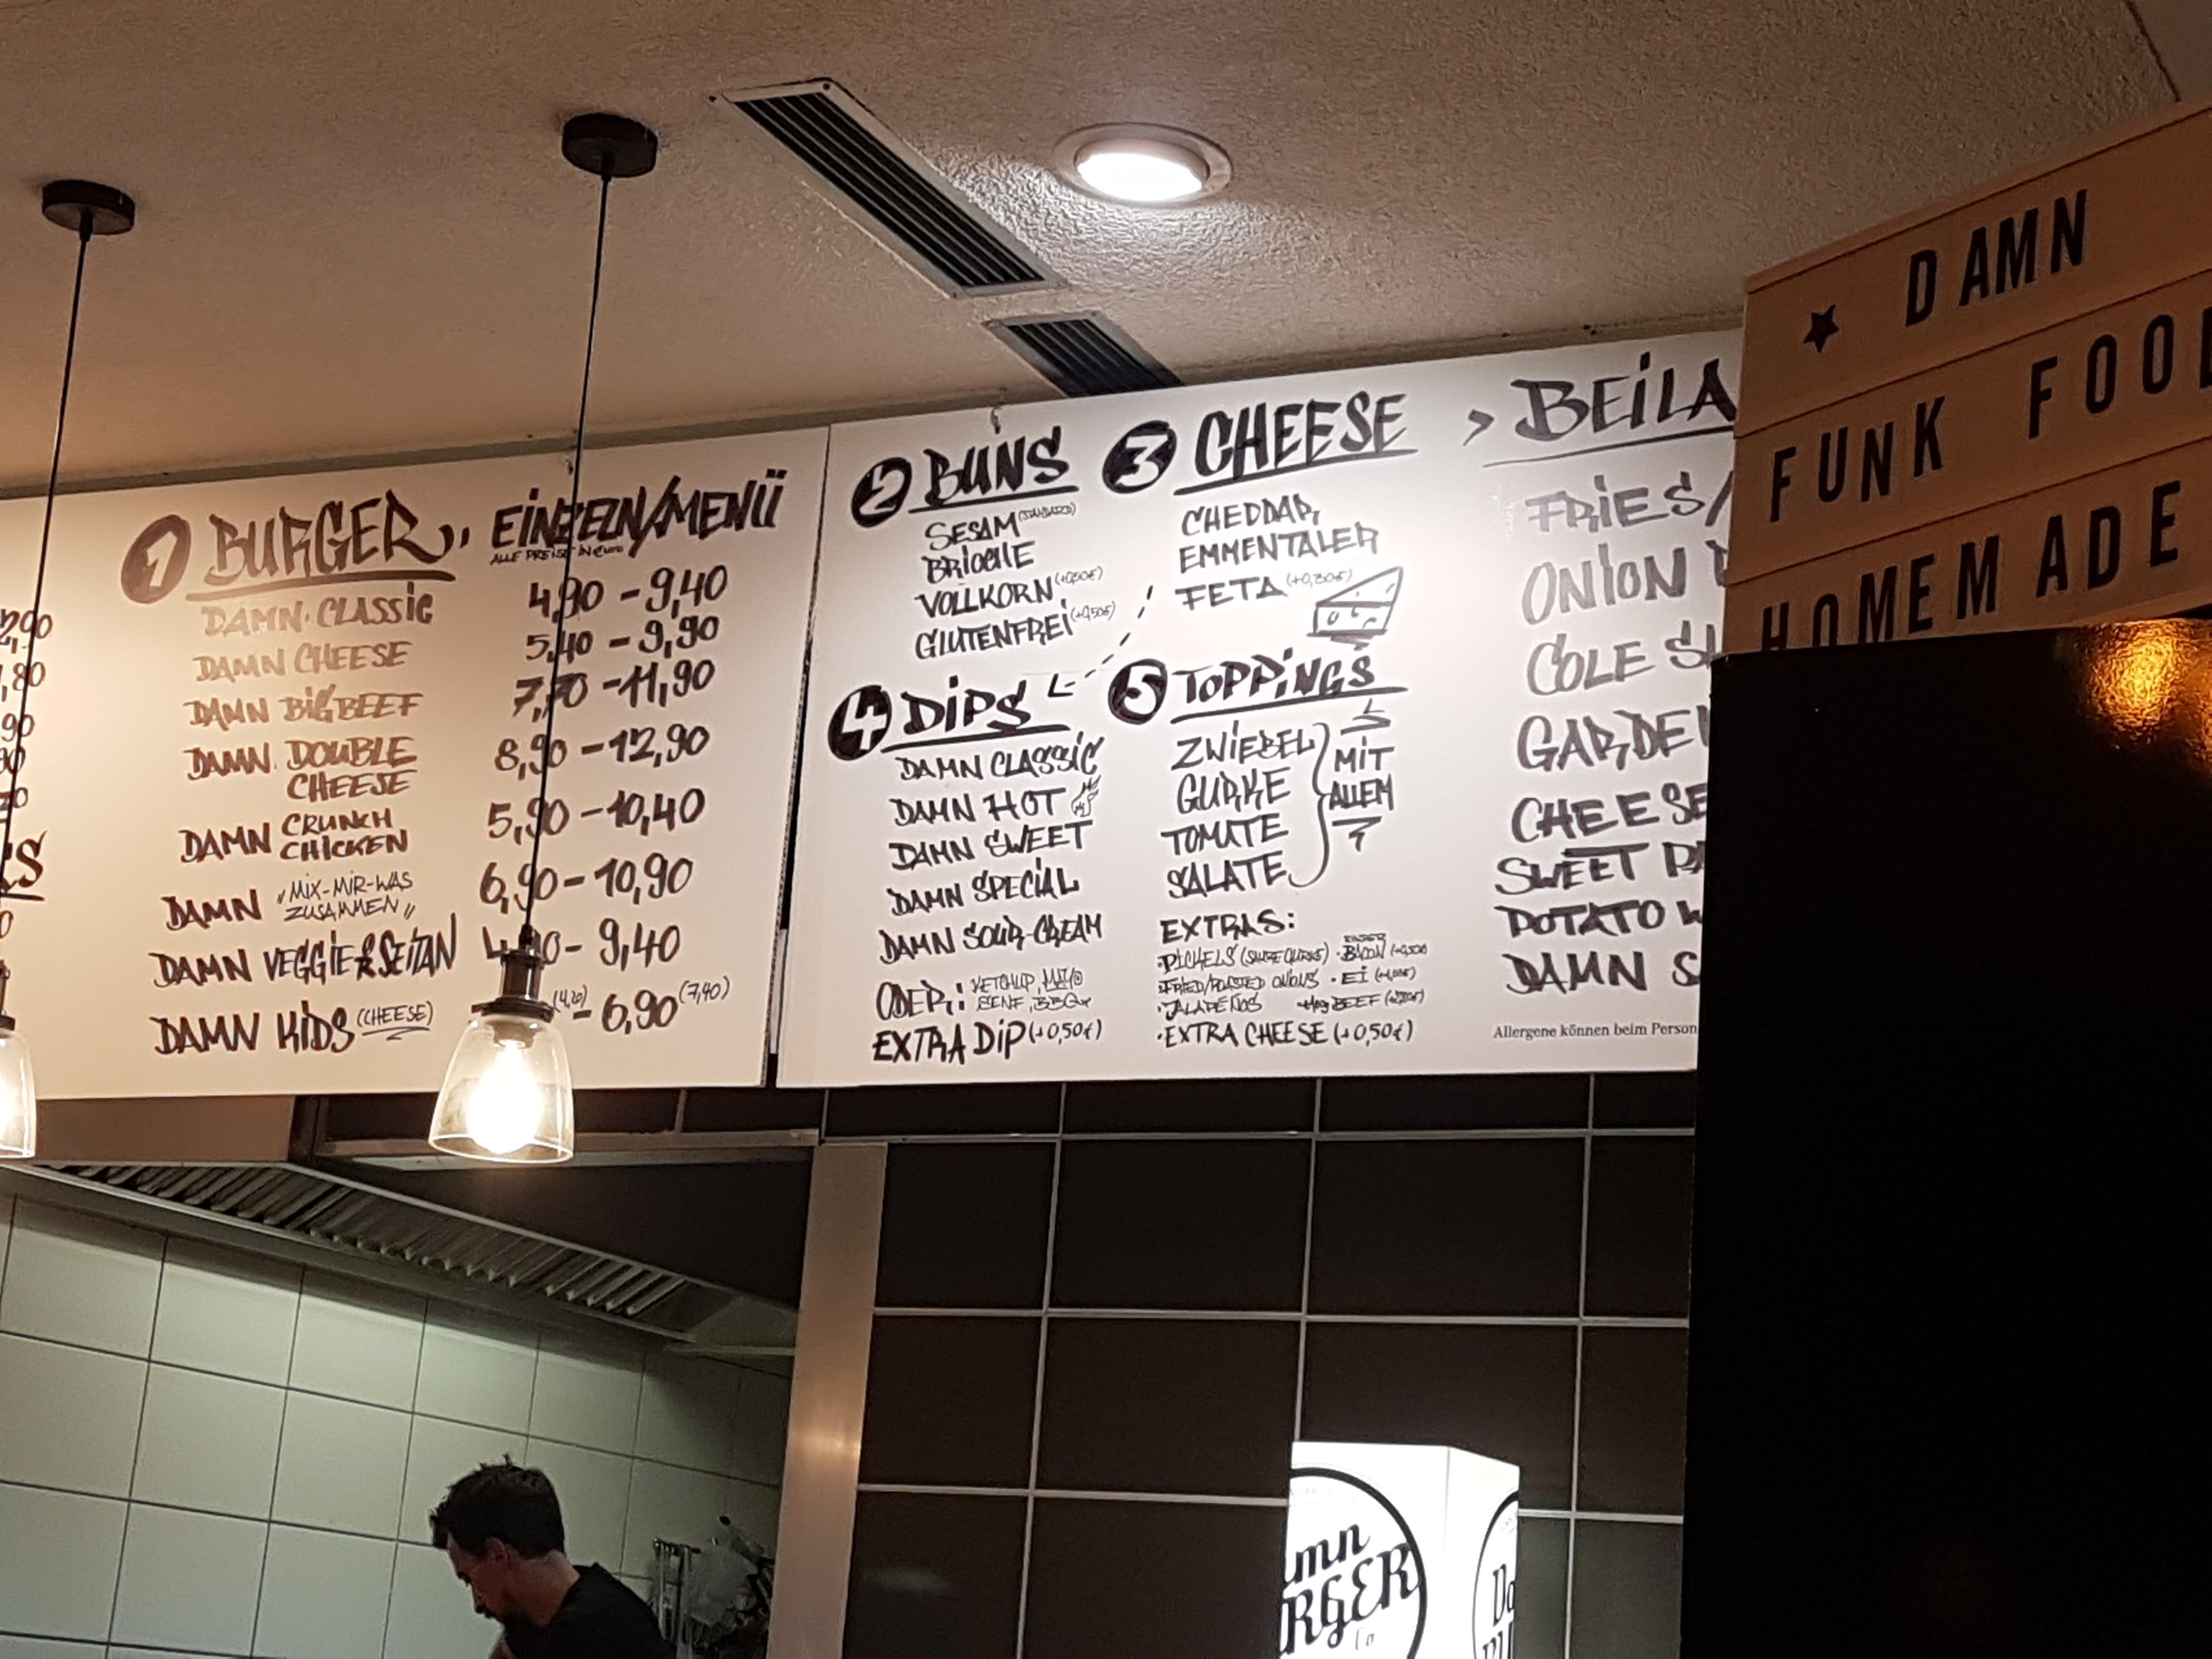 1 BURGER, EINZELN/MENÜ
ALLE PREISE IN EURO
DAMN CLASSIC 4,90 - 9,40
DAMN CHEESE 5,40 - 9,90
DAMN BIG BEEF 7,70 - 11,90
DAMN DOUBLE CHEESE 8,90 - 12,90
DAMN CRUNCH CHICKEN 5,90 - 10,40
DAMN "MIX-MIR-WAS ZUSAMMEN" 6,90 - 10,90
DAMN VEGGIE & SEITAN - 9,40
DAMN KIDS (CHEESE) (4,20) - 6,90 (7,40)
2 BUNS
SESAM (STANDARD)
BRIOCHE
VOLLKORN (+0,50€)
GLUTENFREI (+1,50€)
3 CHEESE
CHEDDAR
EMMENTALER
FETA (+0,30€)
4 DIPS
DAMN CLASSIC
DAMN HOT
DAMN SWEET
DAMN SPECIAL
DAMN SOUR-CREAM
ODER: KETCHUP, MAYO
SENF, BBQ
EXTRA DIP (+0,50€)
5 TOPPINGS
ZWIEBEL
GURKE
TOMATE
SALATE
MIT
ALLEM
EXTRAS:
·PICKELS (SAURE GURKE) ·BACON
·FRIED/ROASTED ONIONS ·EI
·JALAPEÑOS BEEF
·EXTRA CHEESE (+0,50€)
> BEILA
FRIES/
ONION
COLE SL
GARDEN
CHEESE
SWEET
POTATO W
DAMN S
Allergene können beim Person
DAMN
FUNK FOOD
HOMEMADE
2,90
,80
90
'S
amn
URGER
Co
Da